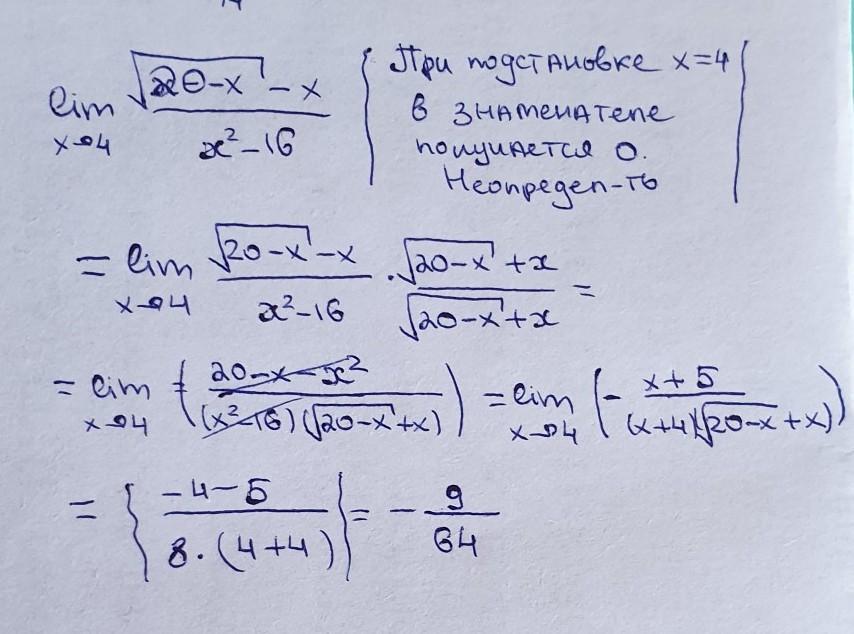 lim x→4 (√(20-x) - x)/(x² - 16) { При подстановке x=4
в знаменателе
получается 0.
Неопредел-ть }
= lim x→4 (√(20-x) - x)/(x² - 16) · (√(20-x) + x)/(√(20-x) + x) =
= lim x→4 (20-x-x²)/((x²-16)(√(20-x)+x)) = lim x→4 (- (x+5)/((x+4)(√(20-x)+x)))
= { (-4-5)/(8·(4+4)) } = - 9/64